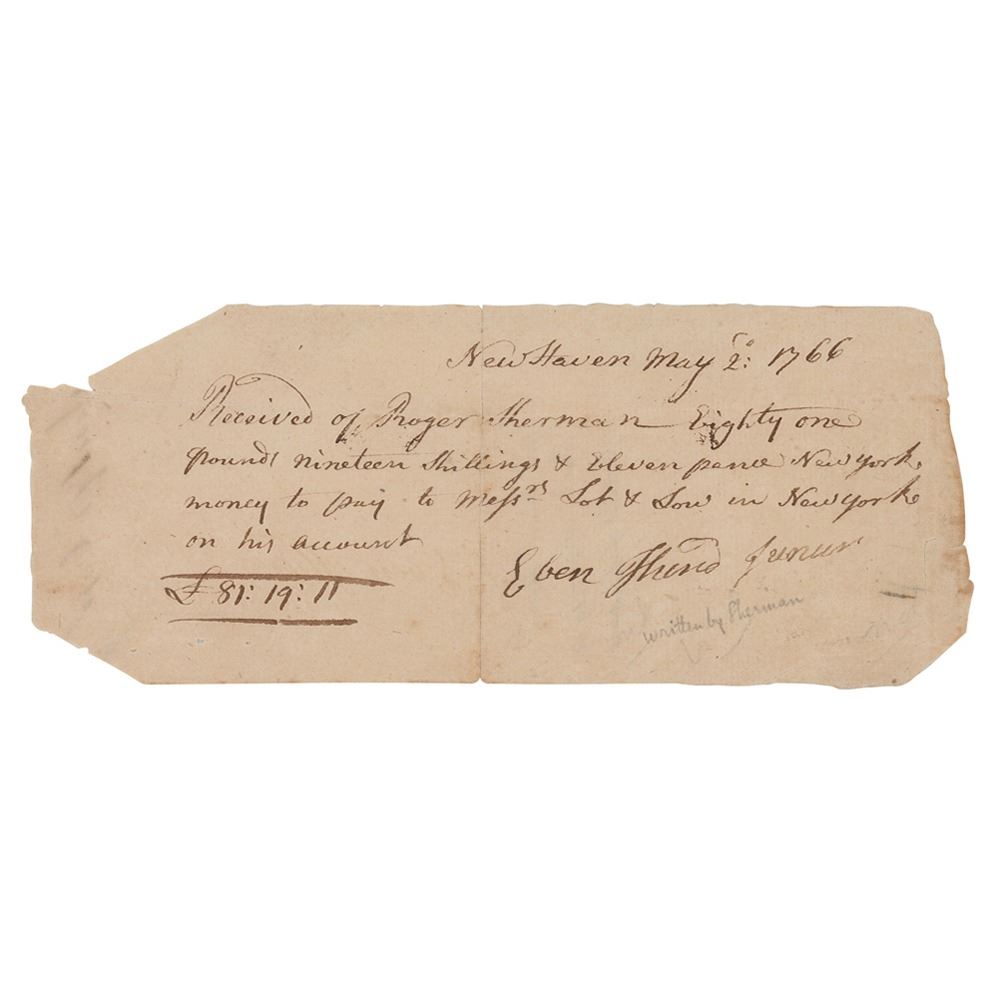 New Haven May 2d: 1766
Received of Roger Sherman Eighty one
pounds nineteen Shillings & Eleven pence New york
money to pay to Messrs Lot & Low in New york
on his account
£ 81: 19: 11
Eben Junior
written by Sherman